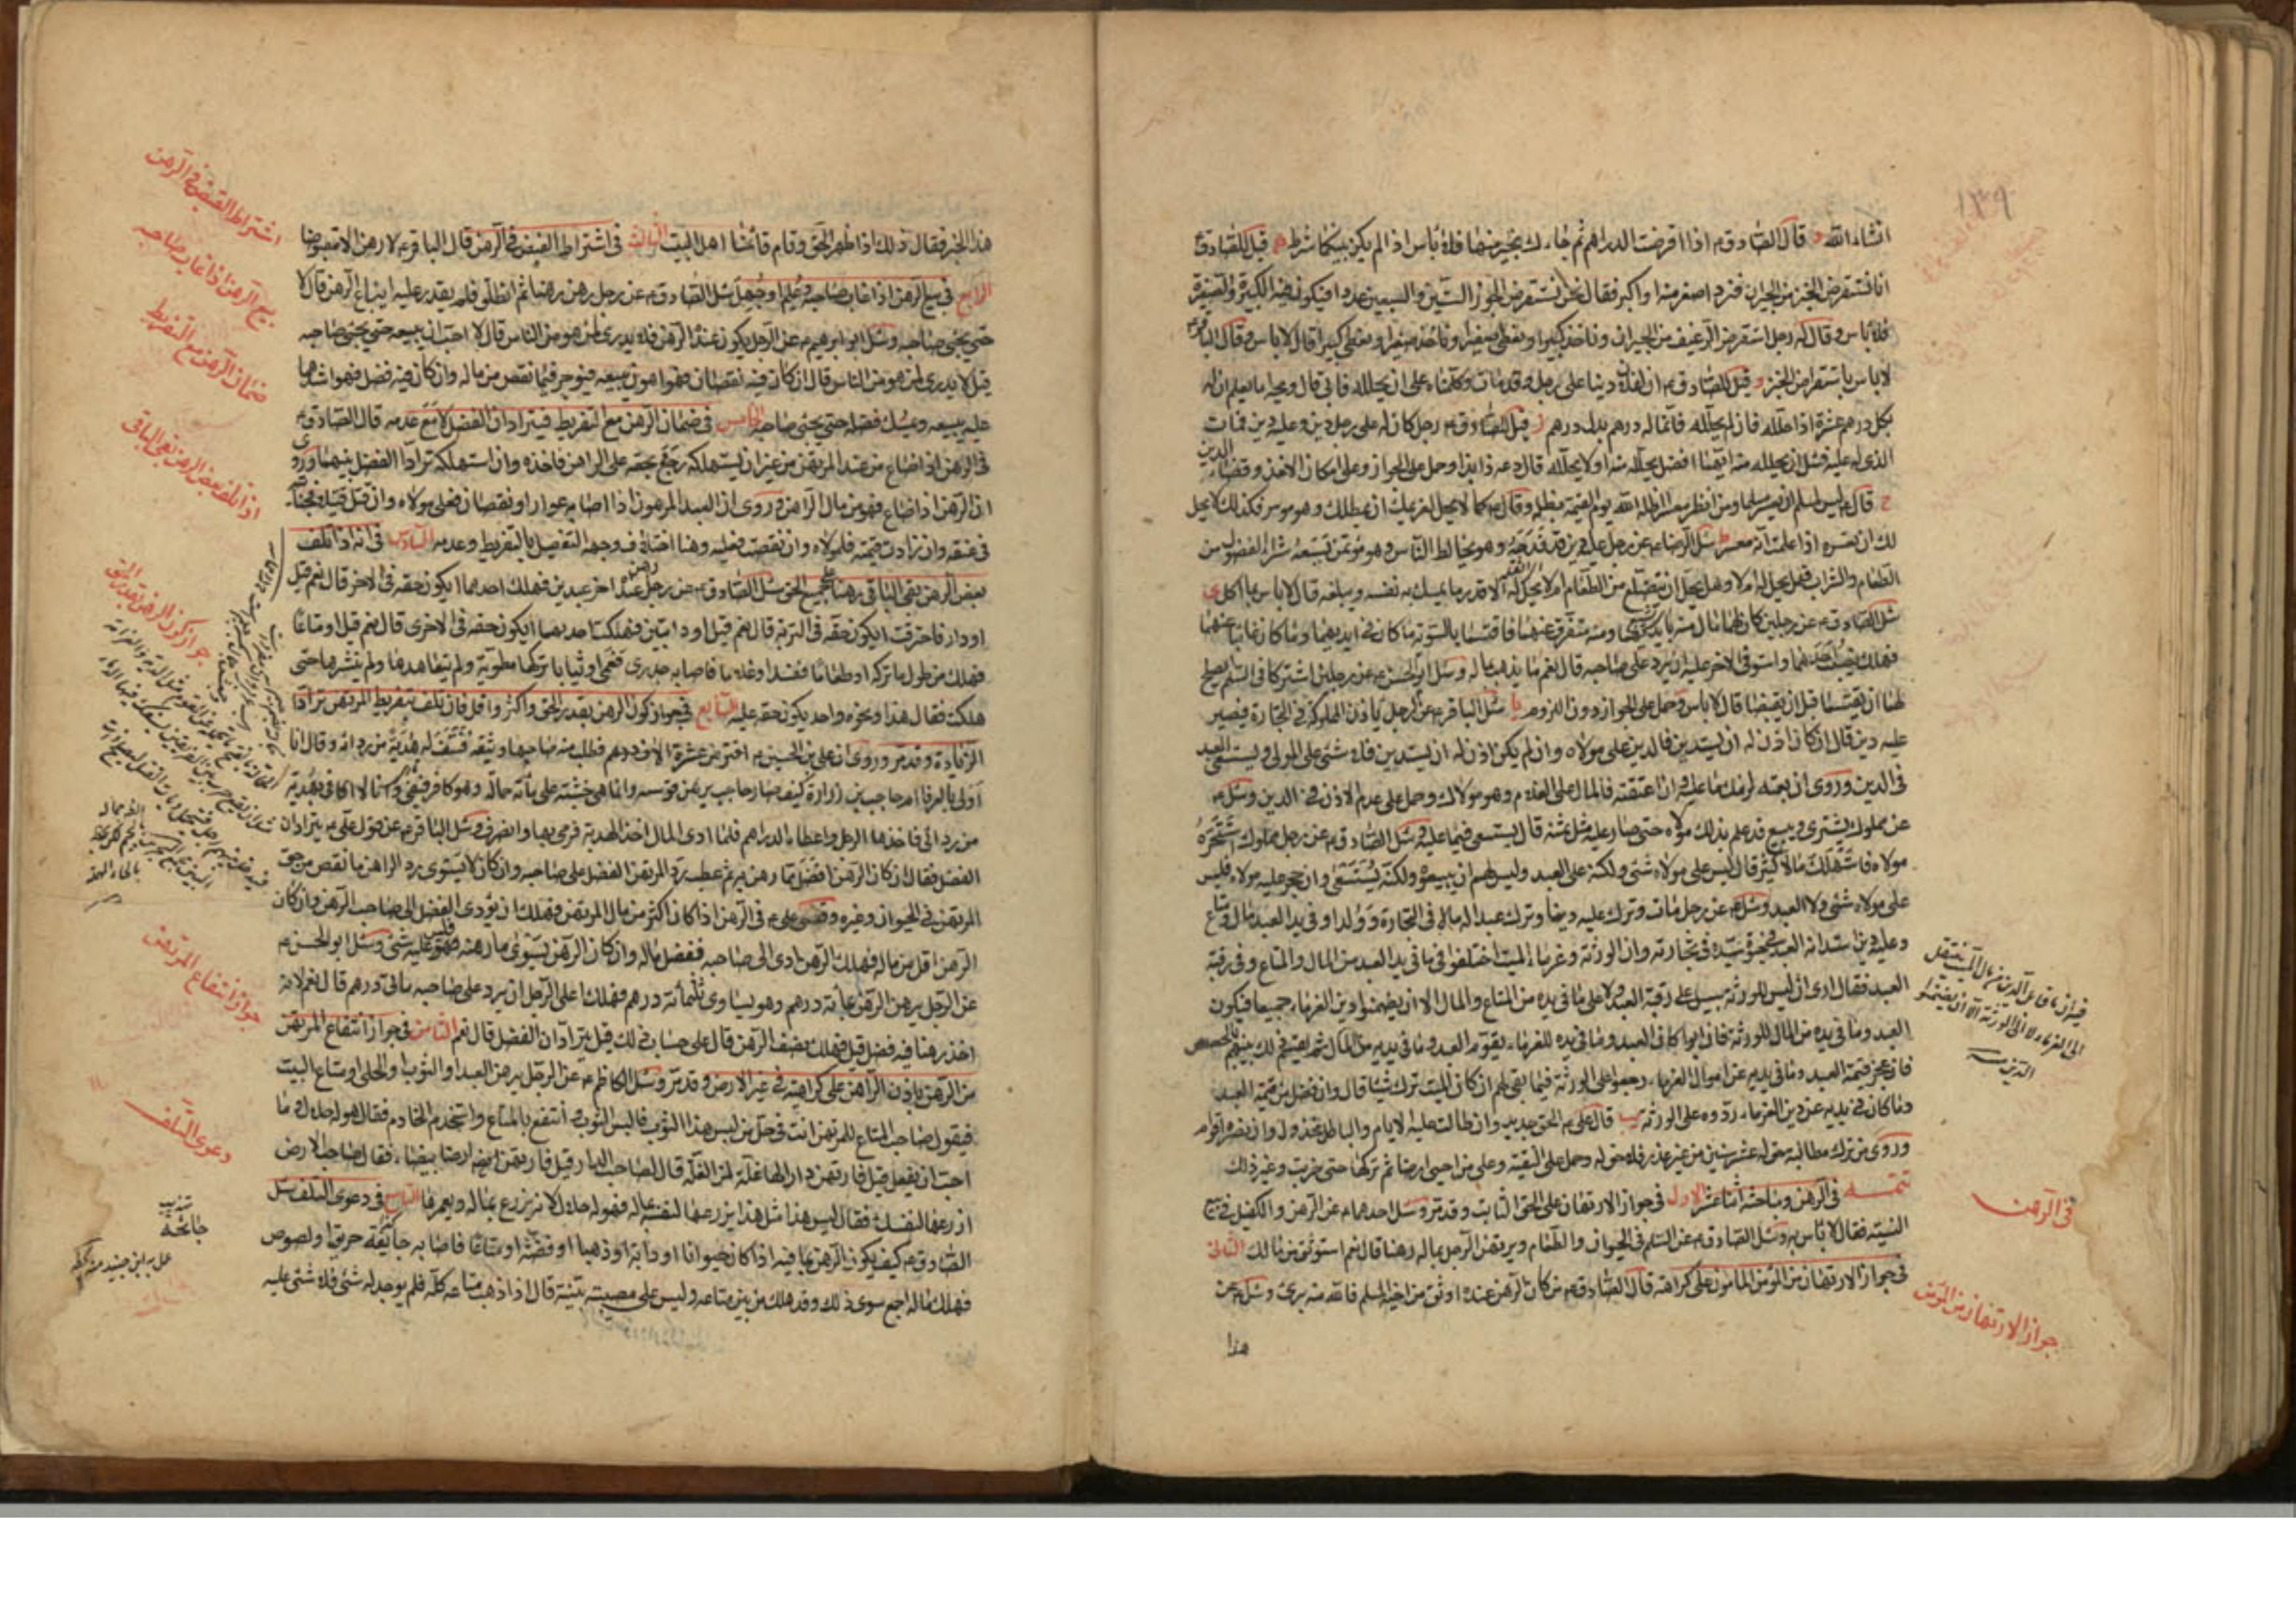 ١٣٩
انشاء الله و قال الصادق ع اذا اقرضت الدراهم ثم جاءك بخير منها فلا بأس اذا لم يكن بينكما شرط ه قيل للصادق ع
انا نستقرض الخبز من الجيران فنرد اصغر منه او اكبر فقال نحن نستقرض الجوز الستين والسبعين عددا فيكون فيه الكبيرة والصغيرة
فلا باس وقال له رجل استقرض الرغيف من الجيران وناخذ كبيرا ونعطى صغيرا وناخذ صغيرا ونعطى كبيرا قال لا باس وقال الباقر ع
لا باس باستقراض الخبز و قيل للصادق ع ان لفلان دينا على رجل وقد مات وكلمناه على ان يحلله فابى قال ويحه اما يعلم ان له
بكل درهم عشرة اذا حلله فان لم يحلله فانما له درهم بدل درهم ز قيل للصادق ع رجل كان له على رجل دين وعليه دين فمات
الذى له عليه فسئل ان يحلله منه ايهما افضل يحلله منه اولا يحلله قال دعه ذا بذا وحمل على الجواز وعلى امكان الاخذ وقضاء الدين
ح قال ع ليس لمسلم ان يعسر مسلما ومن انظر معسرا اظله الله يوم القيمة بظله وقال ع كما لا يحل لغريمك ان يمطلك وهو موسر فكذلك لا يحل
لك ان تعسره اذا علمت انه معسر ط سئل الرضا ع عن رجل عليه دين قد فدحه وهو يخالط الناس وهو مؤتمن يسعه شراء الفضول من
الطعام والشراب فهل يحل له ام لا وهل يحل ان يتضلع من الطعام ام لا يحل له الا قدر ما يمسك به نفسه ويبلغه قال لا باس بما اكل ى
سئل الصادق ع عن رجلين كان لهما مال منه بايديهما ومنه متفرق عنهما فاقتسما بالسوية ما كان في ايديهما وما كان غائبا عنهما
فهلك نصيب احدهما واستوفى الاخر عليه ان يرد على صاحبه قال نعم ما يذهب بماله وسئل ابو الحسن ع عن رجلين اشتركا في السلم يصلح
لهما ان يقتسما قبل ان يقبضا قال لا باس وحمل على الجواز دون اللزوم يا سئل الباقر ع عن الرجل ياذن لمملوكه في التجارة فيصير
عليه دين قال ان كان اذن له ان يستدين فالدين على مولاه وان لم يكن اذن له ان يستدين فلا شئ على المولى ويستسعى العبد
في الدين وروى ان بعته لزمك ما عليه وان اعتقته فالمال على الغلام وهو مولاك وحمل على عدم الاذن في الدين وسئل ع
عن مملوك يشترى ويبيع قد علم بذلك مولاه حتى صار عليه مثل ثمنه قال يستسعى فيما عليه وسئل الصادق ع عن رجل مملوك استتجره
مولاه فاستهلك مالا كثيرا قال ليس على مولاه شئ ولكنه على العبد وليس لهم ان يبيعوه ولكنه يستسعى وان حجر عليه مولاه فليس
على مولاه شئ ولا العبد وسئل ع عن رجل مات وترك عليه دينا وترك عبدا له مال في التجارة وولدا وفي يد العبد مال ومتاع
وعليه دين استدانه العبد في حيوة سيده في تجارته وان الورثة وغرماء الميت اختلفوا في ما في يد العبد من المال والمتاع وفي رقبة
العبد فقال ارى ان ليس للورثة سبيل على رقبة العبد ولا على ما في يده من المتاع والمال الا ان يضمنوا دين الغرماء جميعا فيكون
العبد وما في يده من المال للورثة فان ابوا كان العبد وما في يده للغرماء يقوم العبد وما في يديه من المال ثم يقسم ذلك بينهم بالحصص
فان عجز قيمة العبد وما في يديه عن اموال الغرماء رجعوا على الورثة فيما بقى لهم ان كان الميت ترك شيئا قال وان فضل من قيمة العبد
وما كان في يديه عن دين الغرماء ردوه على الورثة يب قال على ع الحق جديد وان طالت عليه الايام والباطل مخذول وان نصره اقوام
وروى من ترك مطالبة حق له عشر سنين من غير عذر فلا حق له وحمل على التقية وعلى من احيى ارضا ثم تركها حتى خربت وغير ذلك
تتمة في الرهن ومباحثه اثنا عشر الاول في جواز الارتهان على الحق الثابت وقد مر وسئل احدهما ع عن الرهن والكفيل في بيع
النسية فقال لا باس به وسئل الصادق ع عن السلم في الحيوان والطعام ويرتهن الرجل بماله رهنا قال نعم استوثق من مالك الثانى
في جواز الارتهان من المؤمن المامون على كراهة قال الصادق ع من كان الرهن عنده اوثق من اخيه المسلم فالله منه برئ وسئل ع عن
هذا
الدين منه
في الرهن
جواز الارتهان من المؤمن
هذا الخبر فقال ذلك اذا ظهر الحق وقام قائمنا اهل البيت الثالث في اشتراط القبض في الرهن قال الباقر ع لا رهن الا مقبوضا
الرابع في بيع الرهن اذا غاب صاحبه وعلم او جهل سئل الصادق ع عن رجل رهن رهنا ثم انطلق فلم يقدر عليه ايباع الرهن قال لا
حتى يجئ صاحبه وسئل ابو ابرهيم ع عن الرجل يكون عنده الرهن فلا يدرى لمن هو من الناس قال لا احب ان يبيعه حتى يجئ صاحبه
قيل لا يدرى لمن هو من الناس قال ان كان فيه نقصان فهو اهون يبيعه فيؤجر فيما نقص من ماله وان كان فيه فضل فهو اشدهما
عليه يبيعه ويمسك فضله حتى يجئ صاحبه الخامس في ضمان الرهن مع التفريط فيترادان الفضل لا مع عدمه قال الصادق ع
في الرهن اذا ضاع من عند المرتهن من غير ان يستهلكه رجع بحقه على الراهن فاخذه وان استهلكه ترادا الفضل بينهما وروى
ان الرهن اذا ضاع فهو من مال الراهن وروى ان العبد المرهون اذا اصابه عوار او نقصان فعلى مولاه وان قتل قتيلا فجنايته
في عنقه وان زادت قيمته فلمولاه وان نقصت فعليه وهنا اختلاف وجهه التفصيل بالتفريط وعدمه السادس في انه اذا تلف
بعض الرهن بقى الباقى رهنا بجميع الحق سئل الصادق ع عن رجل رهن عند اخر عبدين فهلك احدهما ايكون حقه في الاخر قال نعم قيل
او دار فاحترقت ايكون حقه في التربة قال نعم قيل او دابتين فهلكت احديهما ايكون حقه في الاخرى قال نعم قيل او متاعا
فهلك من طول ما تركه او طعاما ففسد او غلاما فاصابه جدرى فعمى او ثيابا تركها مطوية ولم يتعاهدها ولم ينشرها حتى
هلكت فقال هذا ونحوه واحد يكون حقه عليه السابع في جواز كون الرهن بقدر الحق واكثر واقل فان تلف بتفريط المرتهن ترادا
الزيادة وقد مر وروى ان على بن الحسين ع اقترض عشرة الاف درهم فطلب منه صاحبها وثيقة فنتف له هدبة من ردائه وقال انا
اولى بالوفا ام حاجب بن زرارة كيف صار حاجب يرهن قوسه وانما هى خشبة على مأة حمالة وهو كافر فيفى وانا لا افى بهدبة
من ردائى فاخذها الرجل واعطاه الدراهم فلما ادى المال اخذ الهدبة فرمى بها وانصرف وسئل الباقر ع عن قول على ع يترادان
الفضل فقال ان كان الرهن افضل مما رهن به ثم عطب رد المرتهن الفضل على صاحبه وان كان لا يسوى رد الراهن ما نقص من حق
المرتهن في الحيوان وغيره وقضى على ع في الرهن اذا كان اكثر من مال المرتهن فهلك ان يؤدى الفضل الى صاحب الرهن وان كان
الرهن اقل من ماله فهلك الرهن ادى الى صاحبه فضل ماله وان كان الرهن يسوى ما رهنه فليس عليه شئ وسئل ابو الحسن ع
عن الرجل يرهن الرهن بمأة درهم وهو يساوى ثلثمأة درهم فهلك اعلى الرجل ان يرد على صاحبه مأتى درهم قال نعم لانه
اخذ رهنا فيه فضل قيل فهلك نصف الرهن قال على حساب ذلك قيل يترادان الفضل قال نعم الثامن في جواز انتفاع المرتهن
من الرهن باذن الراهن على كراهية في غير الارض وقد مر وسئل الكاظم ع عن الرجل يرهن العبد او الثوب او الحلى او متاع البيت
فيقول صاحب المتاع للمرتهن انت في حل من لبس هذا الثوب فالبس الثوب وانتفع بالمتاع واستخدم الخادم فقال هو له حلال وما
احب ان يفعل قيل فارتهن دارا لها غلة لمن الغلة قال لصاحب الدار قيل فارتهن ارضا بيضاء فقال صاحب الارض
ازرعها لنفسك فقال ليس هذا مثل هذا يزرعها لنفسه بماله فهو له حلال لانه يزرع بماله ويعمرها التاسع في دعوى التلف سئل
الصادق ع كيف يكون الرهن بما فيه اذا كان حيوانا او دابة او ذهبا او فضة او متاعا فاصابه جائحة حريق او لصوص
فهلك ماله اجمع سوى ذلك وقد هلك من بين متاعه وليس على مصيبته بينة قال اذا ذهب متاعه كله فلم يوجد له شئ فلا شئ عليه
اشتراط القبض في الرهن
بيع الرهن اذا غاب صاحبه
ضمان الرهن مع التفريط
اذا تلف بعض الرهن بقى الباقى
جواز كون الرهن بقدر الحق
جواز انتفاع المرتهن
دعوى التلف
جائحة